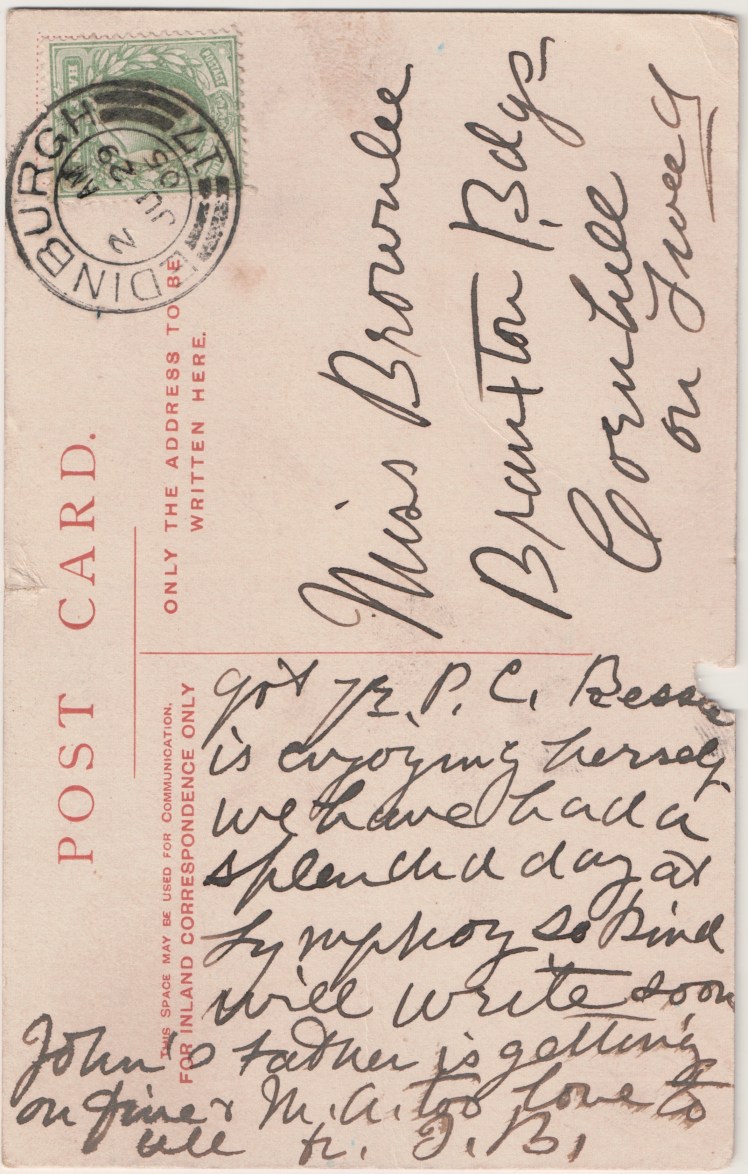 POST CARD.
ONLY THE ADDRESS TO BE
WRITTEN HERE.
THIS SPACE MAY BE USED FOR COMMUNICATION.
FOR INLAND CORRESPONDENCE ONLY
POSTAGE
EDINBURGH
17
2 AM
JU 29
05
Miss Brownlee
Branxton Bdgs
Cornhill
on Tweed
got yr. P. C. Bessie
is enjoying herself
we have had a
splendid day at
so kind
will write soon
John's father is getting
on fine & M. A. too love to
all fr. J. B.